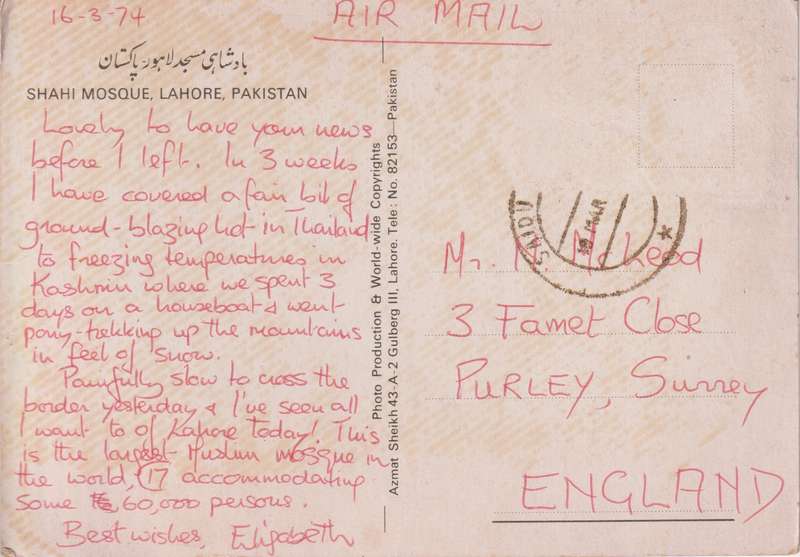 16-3-74
AIR MAIL
بادشاہی مسجد لاہور پاکستان
SHAHI MOSQUE, LAHORE, PAKISTAN
Lovely to have your news
before I left. In 3 weeks
I have covered a fair bit of
ground - blazing hot in Thailand
to freezing temperatures in
Kashmir where we spent 3
days on a houseboat & went
pony-trekking up the mountains
in feet of snow.
Painfully slow to cross the
border yesterday & I've seen all
I want to of Lahore today! This
is the largest Muslim mosque in
the world, (17 accommodating
some 60,000 persons.
Best wishes, Elizabeth
Photo Production & World-wide Copyrights
Azmat Sheikh 43-A-2 Gulberg III, Lahore. Tele: No. 82153—Pakistan
SAIDU
MAR
Mr. McLeod
3 Famet Close
PURLEY, Surrey
ENGLAND